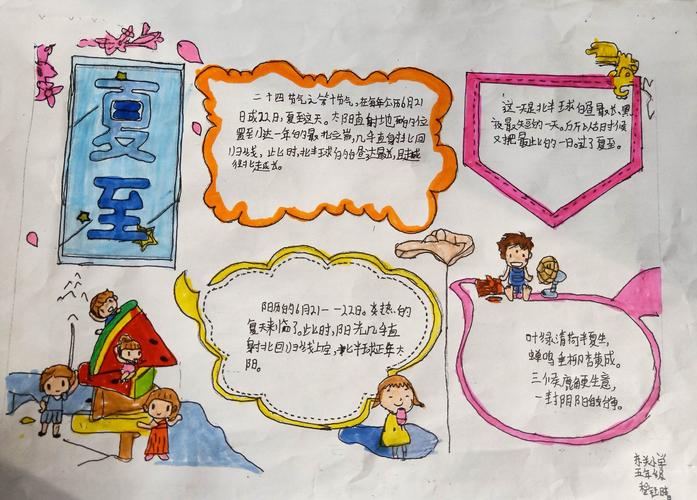 夏至
二十四节气之第十节气,在每年公历6月21
日或22日,夏至这天。太阳直射地面的位
置至小达一年的最北端,几乎直射北回
归线,此时,北半球白的昼达最长,且越
往北越长。
这一天是北半球白昼最长、黑
夜最短的一天。所以古时候
又把
的一日。过了夏至。
阳历的6月21——22日。炎热的
夏天来临了。此时,阳光几乎直
射北回归线上空,北半球正午太
阳。
叶绿清荷半夏生,
蝉鸣垂柳杏黄成。
三候鹿角更生意,
一封阴阳
五年级